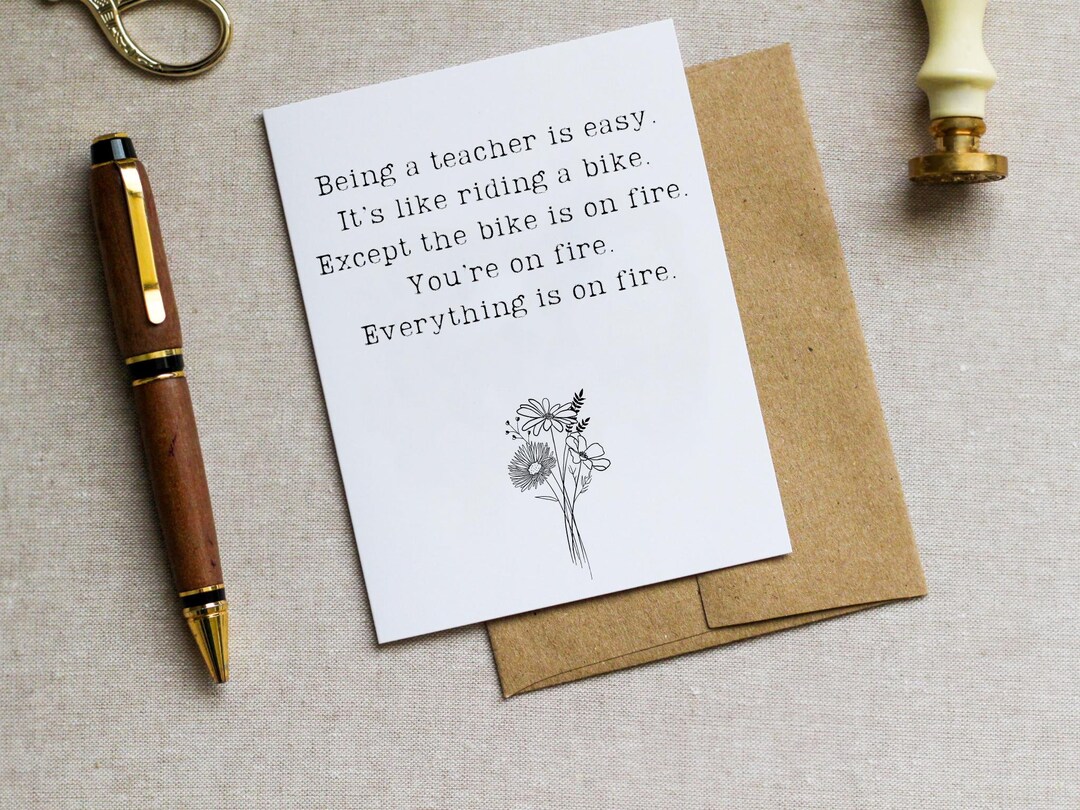 Being a teacher is easy.
It's like riding a bike.
Except the bike is on fire.
You're on fire.
Everything is on fire.